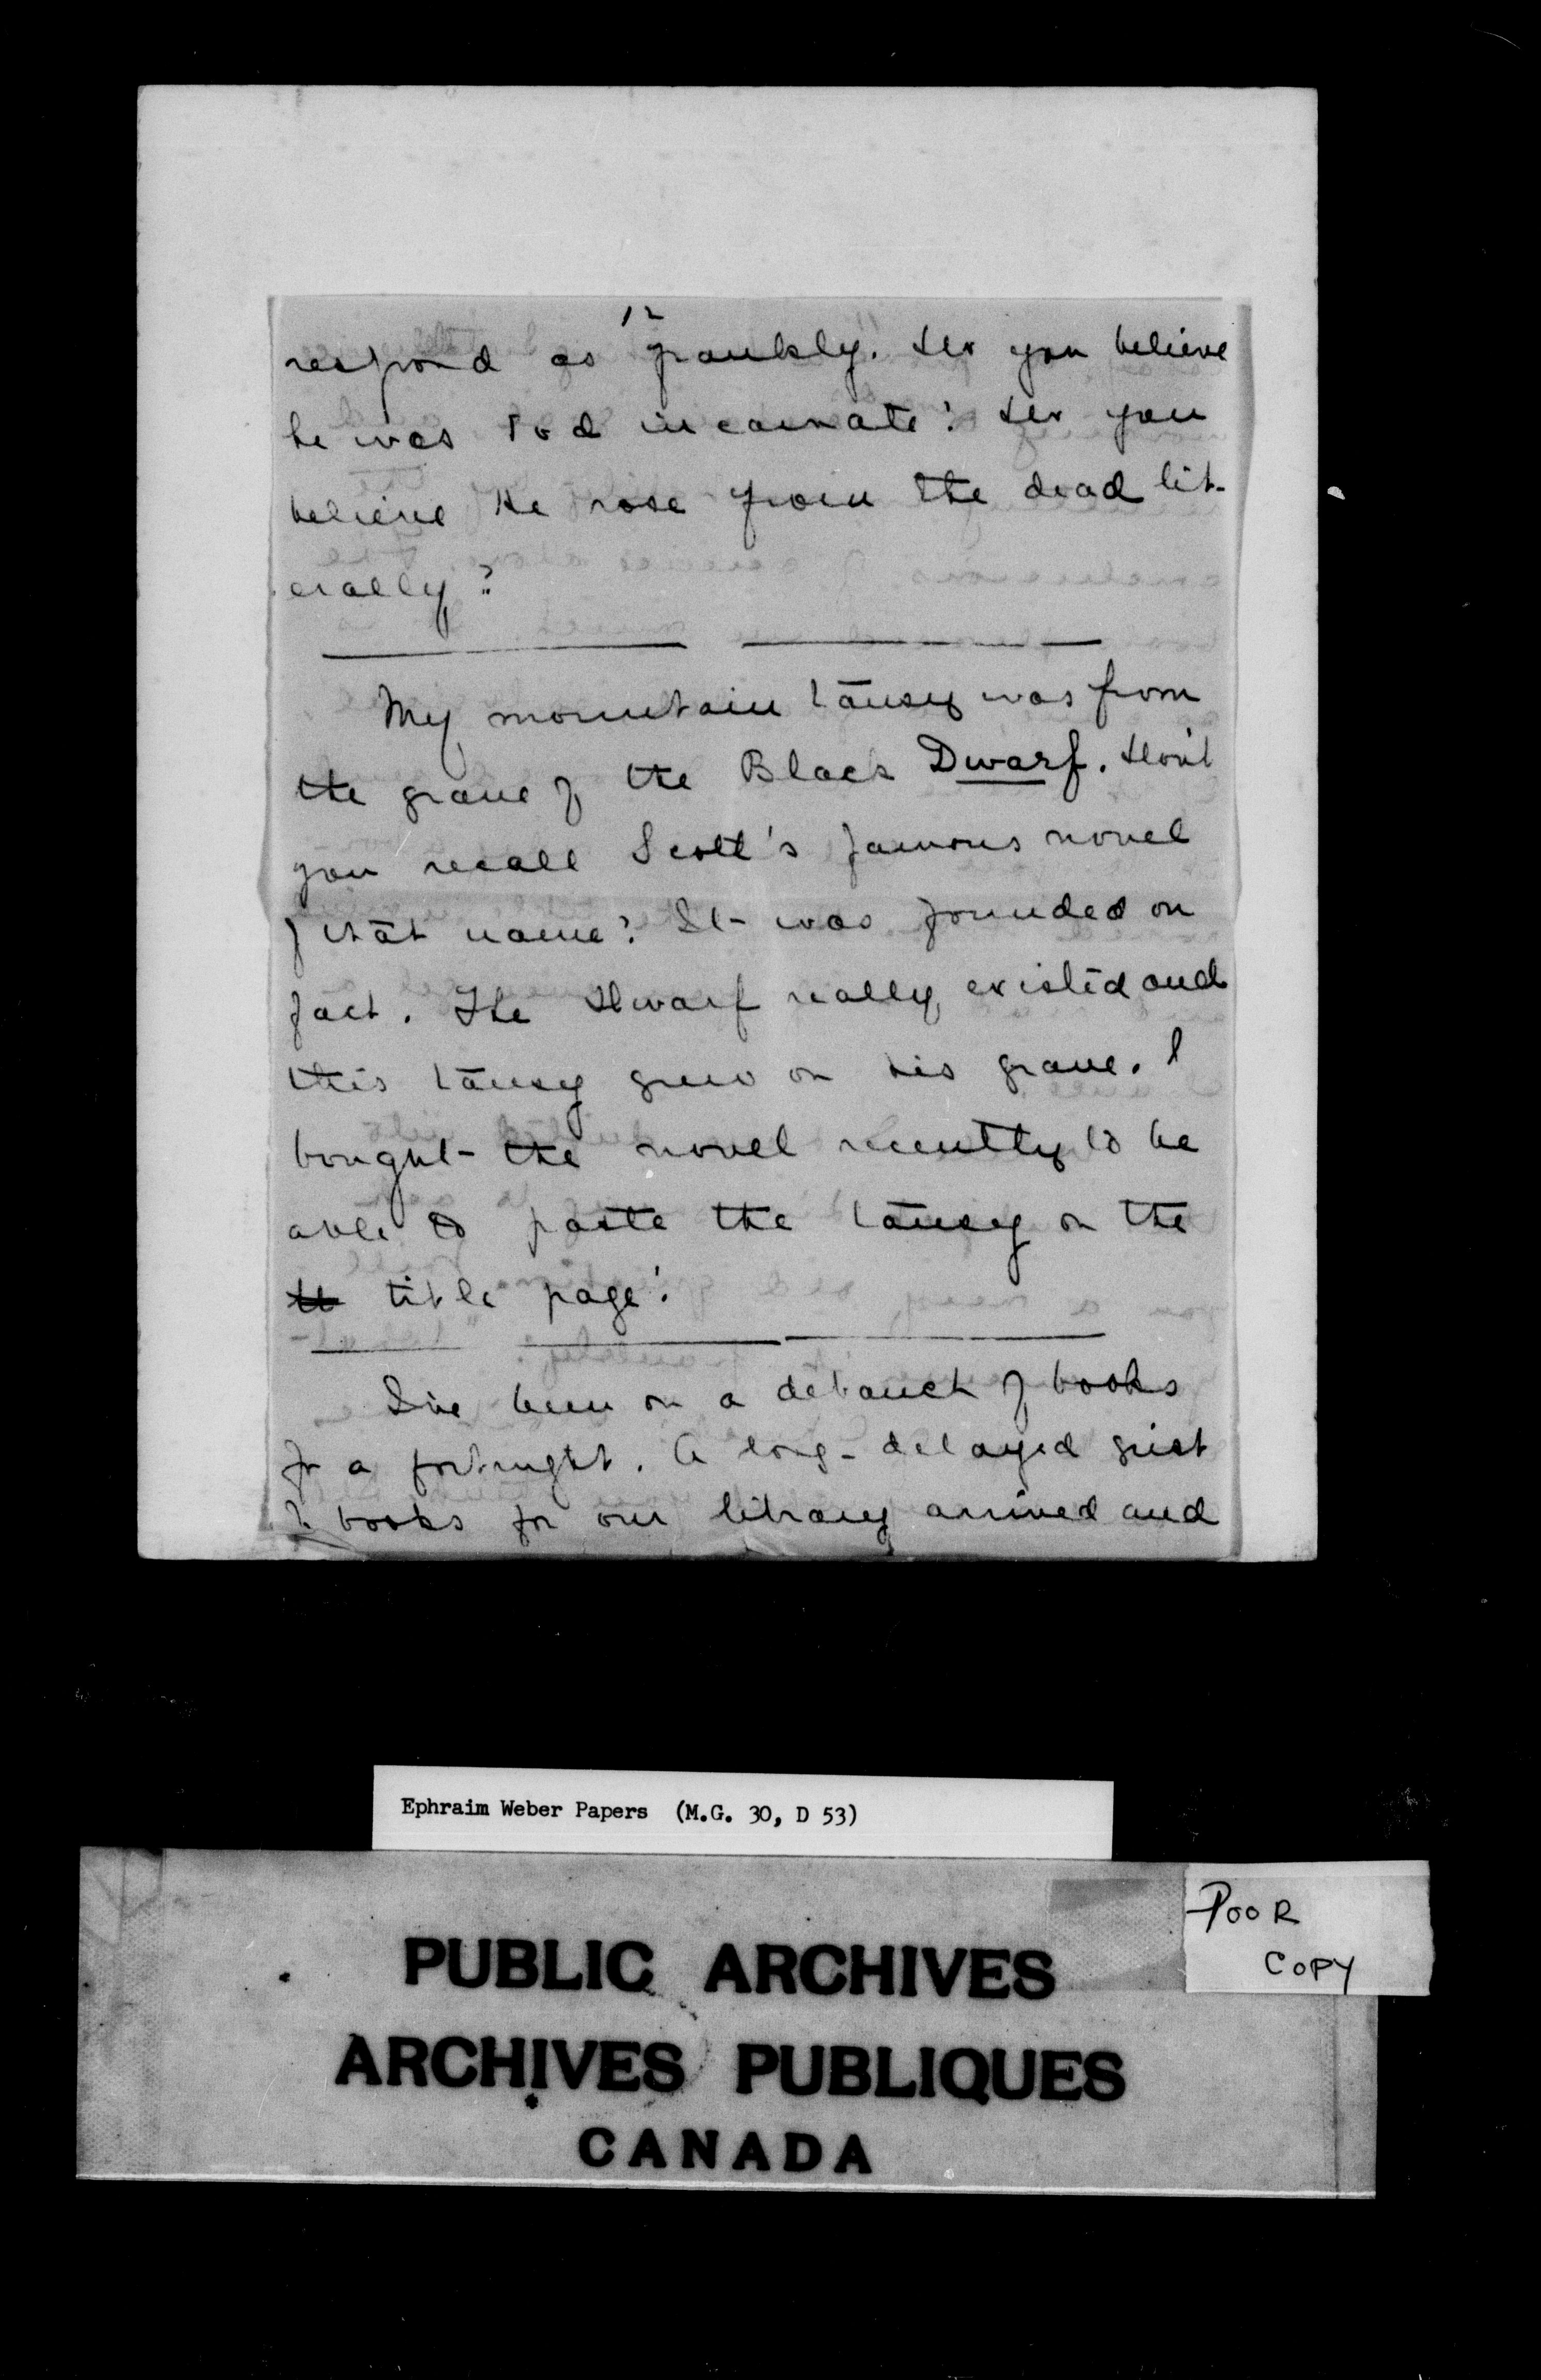 12
respond as frankly. Do you believe
he was God incarnate? Do you
believe He rose from the dead lit-
erally?
My mountain tansy was from
the grave of the Black Dwarf. Don't
you recall Scott's famous novel
of that name? It was founded on
fact. The Dwarf really existed and
this tansy grew on his grave. I
bought the novel recently to be
able to paste the tansy on the
title page!
I've been on a debauch of books
for a fortnight. A long-delayed grist
of books for our library arrived and
Ephraim Weber Papers (M.G. 30, D 53)
POOR
COPY
PUBLIC ARCHIVES
ARCHIVES PUBLIQUES
CANADA